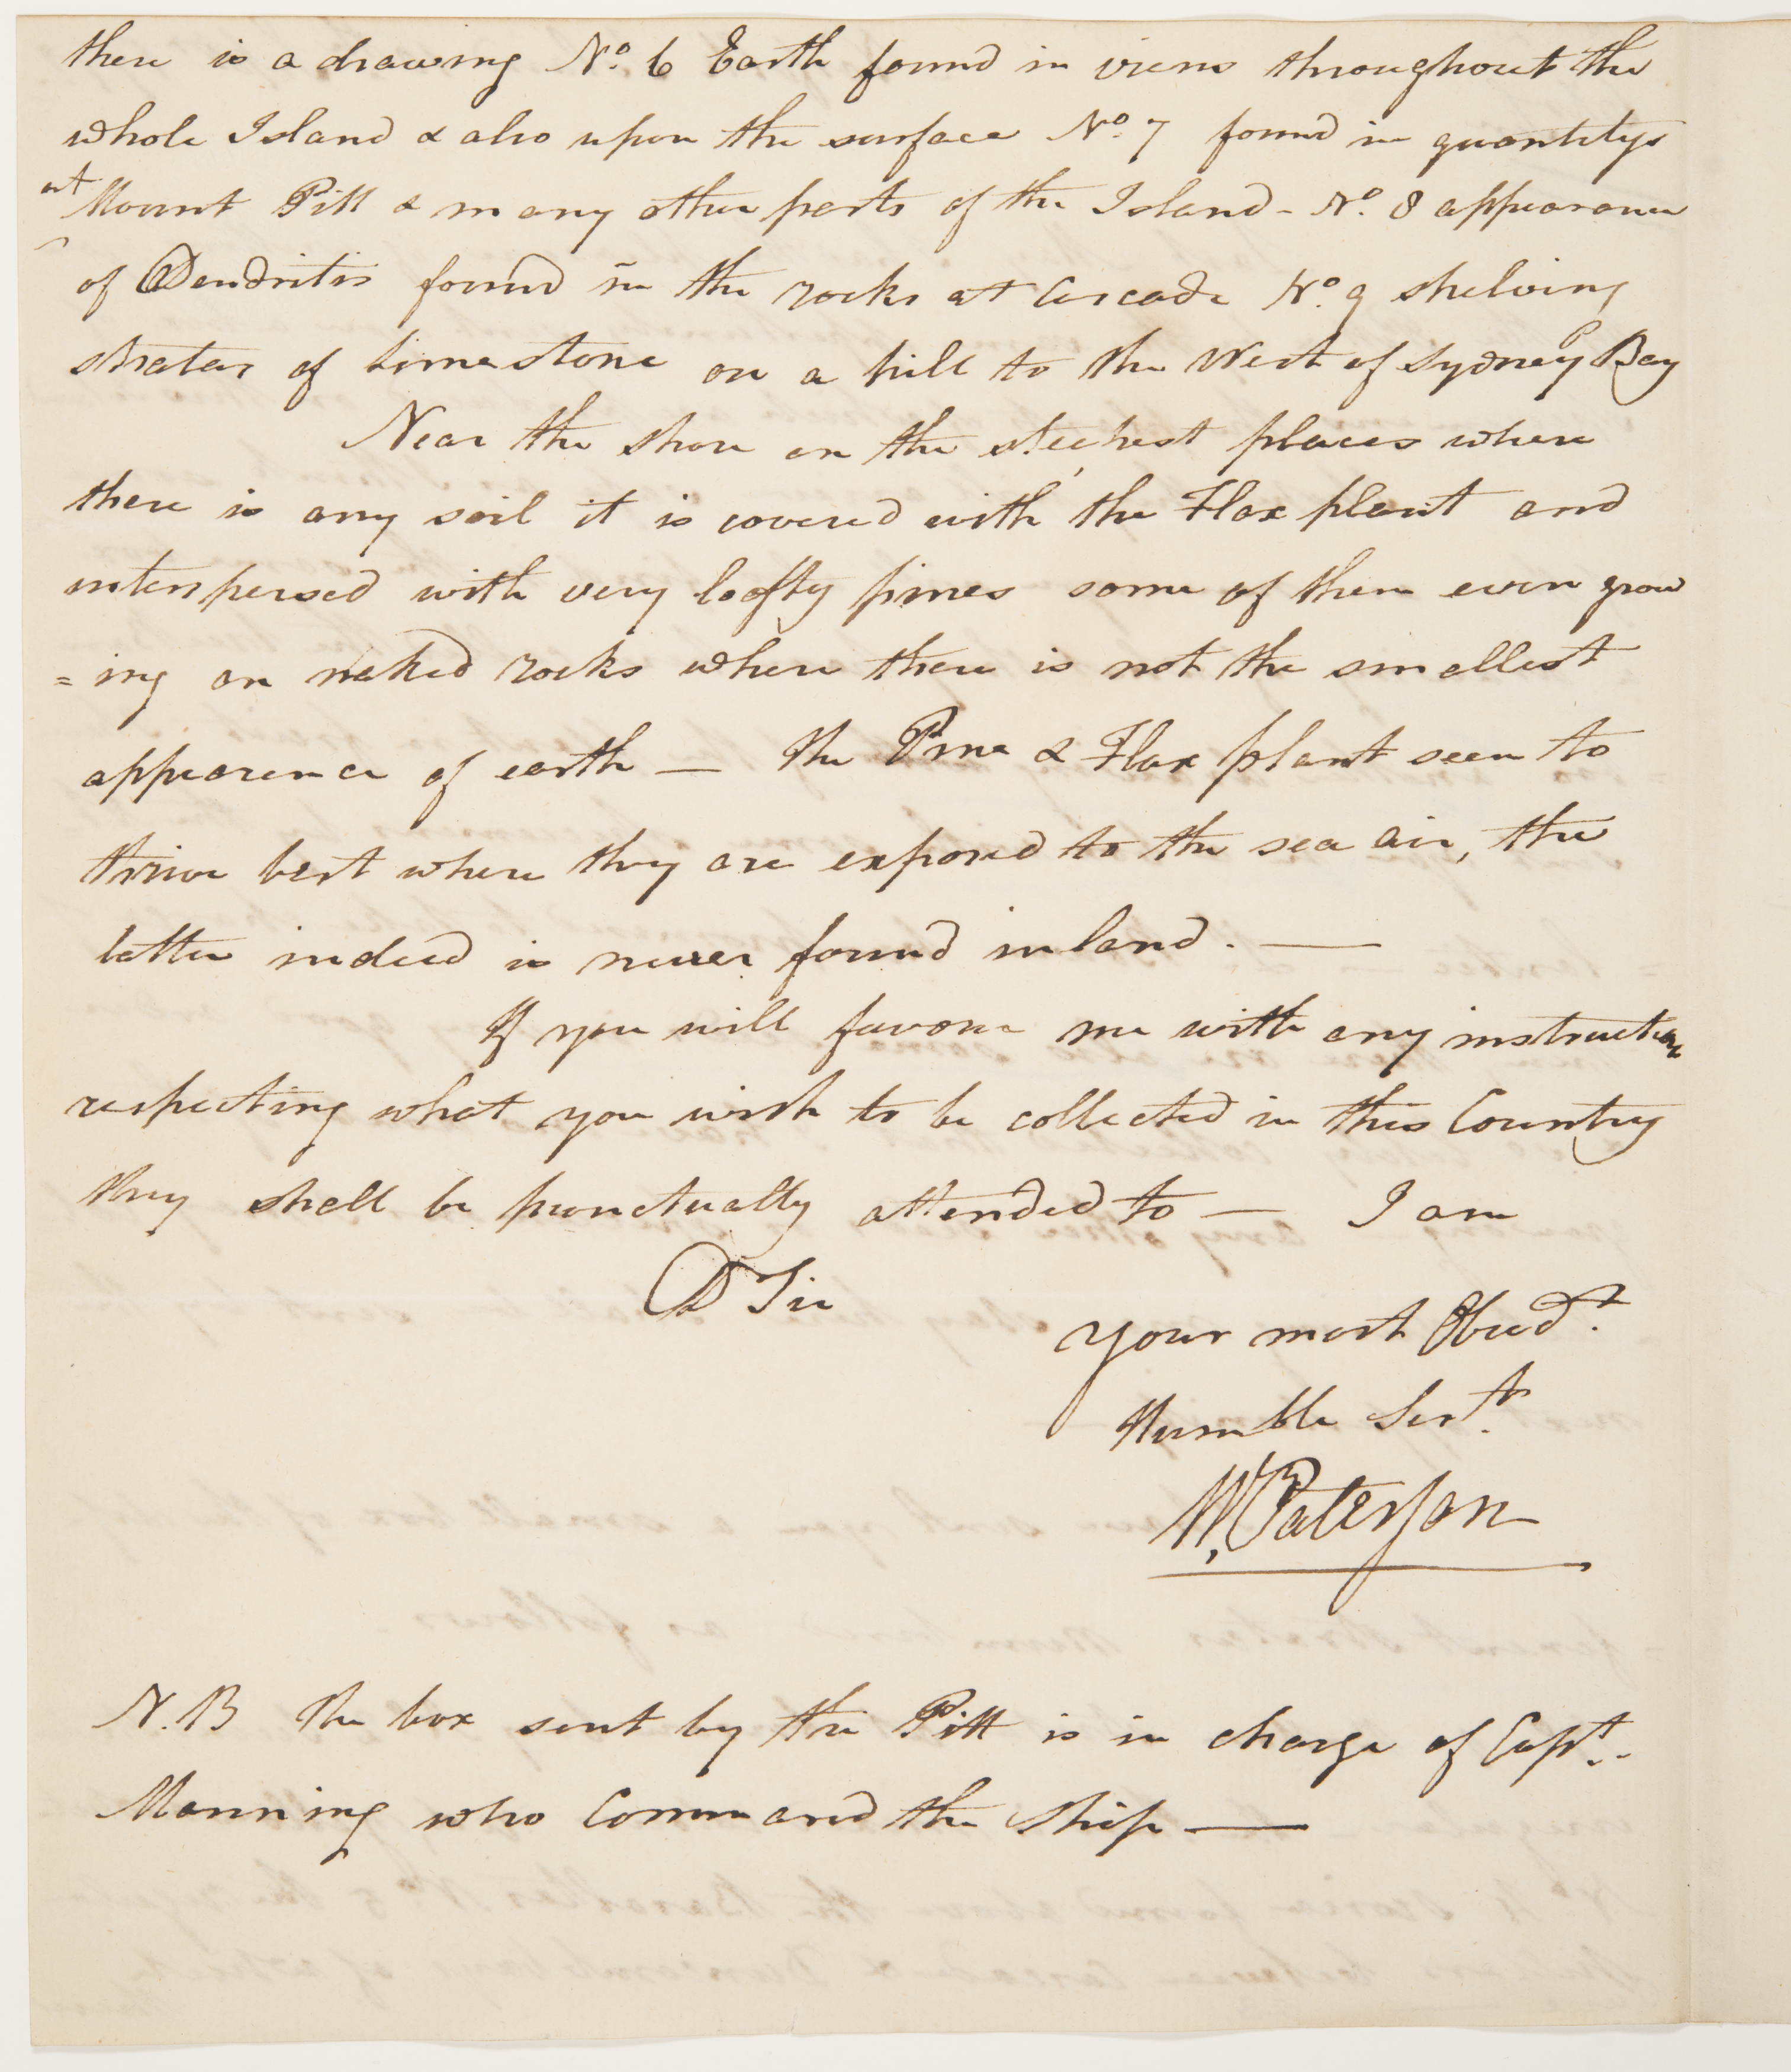 there is a drawing No. 6 Earth found in viens throughout the
whole Island & also upon the surface No. 7 found in quantitys
at Mount Pitt & many other parts of the Island - No. 8 appearance
of Dendritis found in the rocks at Cascade No. 9 shelving
stratas of limestone on a hill to the West of Sydney Bay
Near the shore on the steepest places where
there is any soil it is covered with the Flax plant and
interspersed with very lofty pines some of them even grow
=ing on naked rocks where there is not the smallest
appearence of earth — the Pine & Flax plant seem to
thrive best where they are exposed to the sea air, the
latter indeed is never found inland. —
If you will favour me with any instructions
respecting what you wish to be collected in this Country
they shall be punctually attended to — I am
D Sir
your most Obedt.
Humble Servt.
W. Paterson
N.B the box sent by the Pitt is in charge of Capt..
Manning who Command the Ship —